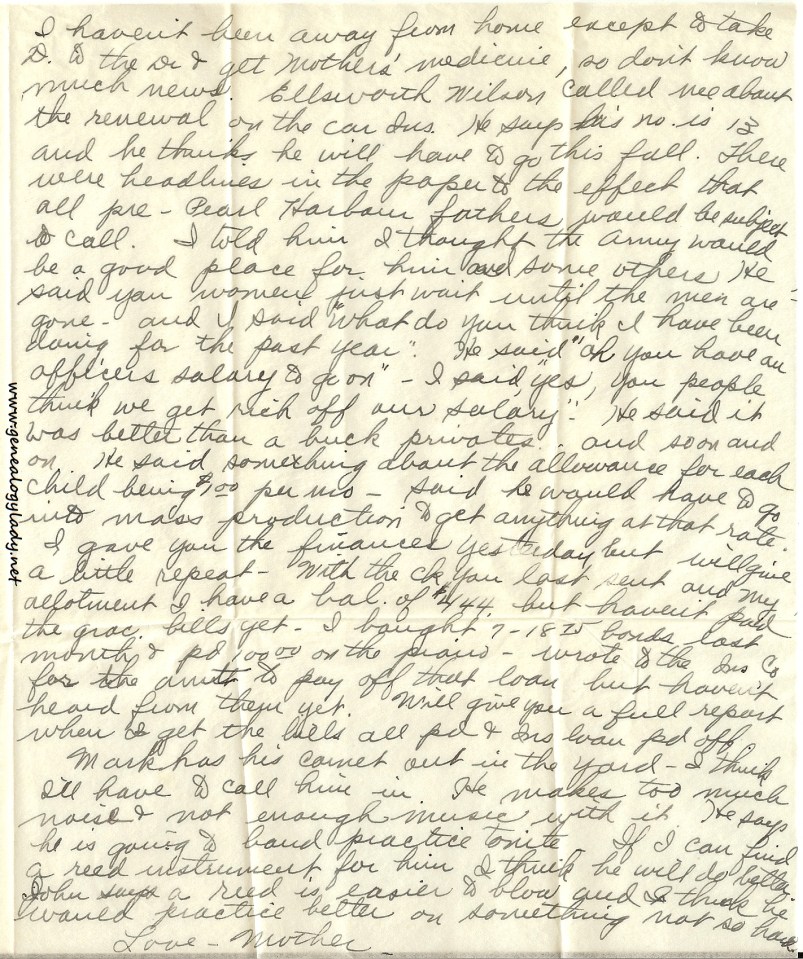 I haven't been away from home except to take
D. to the Dr & get Mothers' medicine, so don't know
much news. Ellsworth Wilson called me about
the renewal on the car Ins. He says his no. is 13
and he thinks he will have to go this fall. There
were headlines in the paper to the effect that
all pre-Pearl Harbour fathers would be subject
to call. I told him I thought the Army would
be a good place for him and some others He
said you women just wait until the men are
gone - and I said "what do you think I have been
doing for the past year". He said "oh you have an
officers salary to go on" - I said, "yes, you people
think we get rich off our salary". He said it
was better than a buck privates.. and soon and
on. He said something about the allowance for each
child being per mo - said he would have to go
into mass production to get anything at that rate.
I gave you the finances yesterday but will give
a little repeat - With the ck you last sent and my
allotment I have a bal. of $444. but haven't paid
the groc. bills yet - I bought 7-18 75 bonds last
month & pd 100 00 on the piano - wrote to the Ins Co
for the amt to pay off that loan but haven't
heard from them yet. Will give you a full report
when I get the bills all pd & Ins loan pd off.
Mark has his cornet out in the yard - I think
I'll have to call him in He makes too much
noise & not enough music with it. He says
he is going to band practice tonite. If I can find
a reed instrument for him I think he will do better.
John says a reed is easier to blow and I think he
would practice better on something not so hard.
Love - Mother
www.genealogylady.net